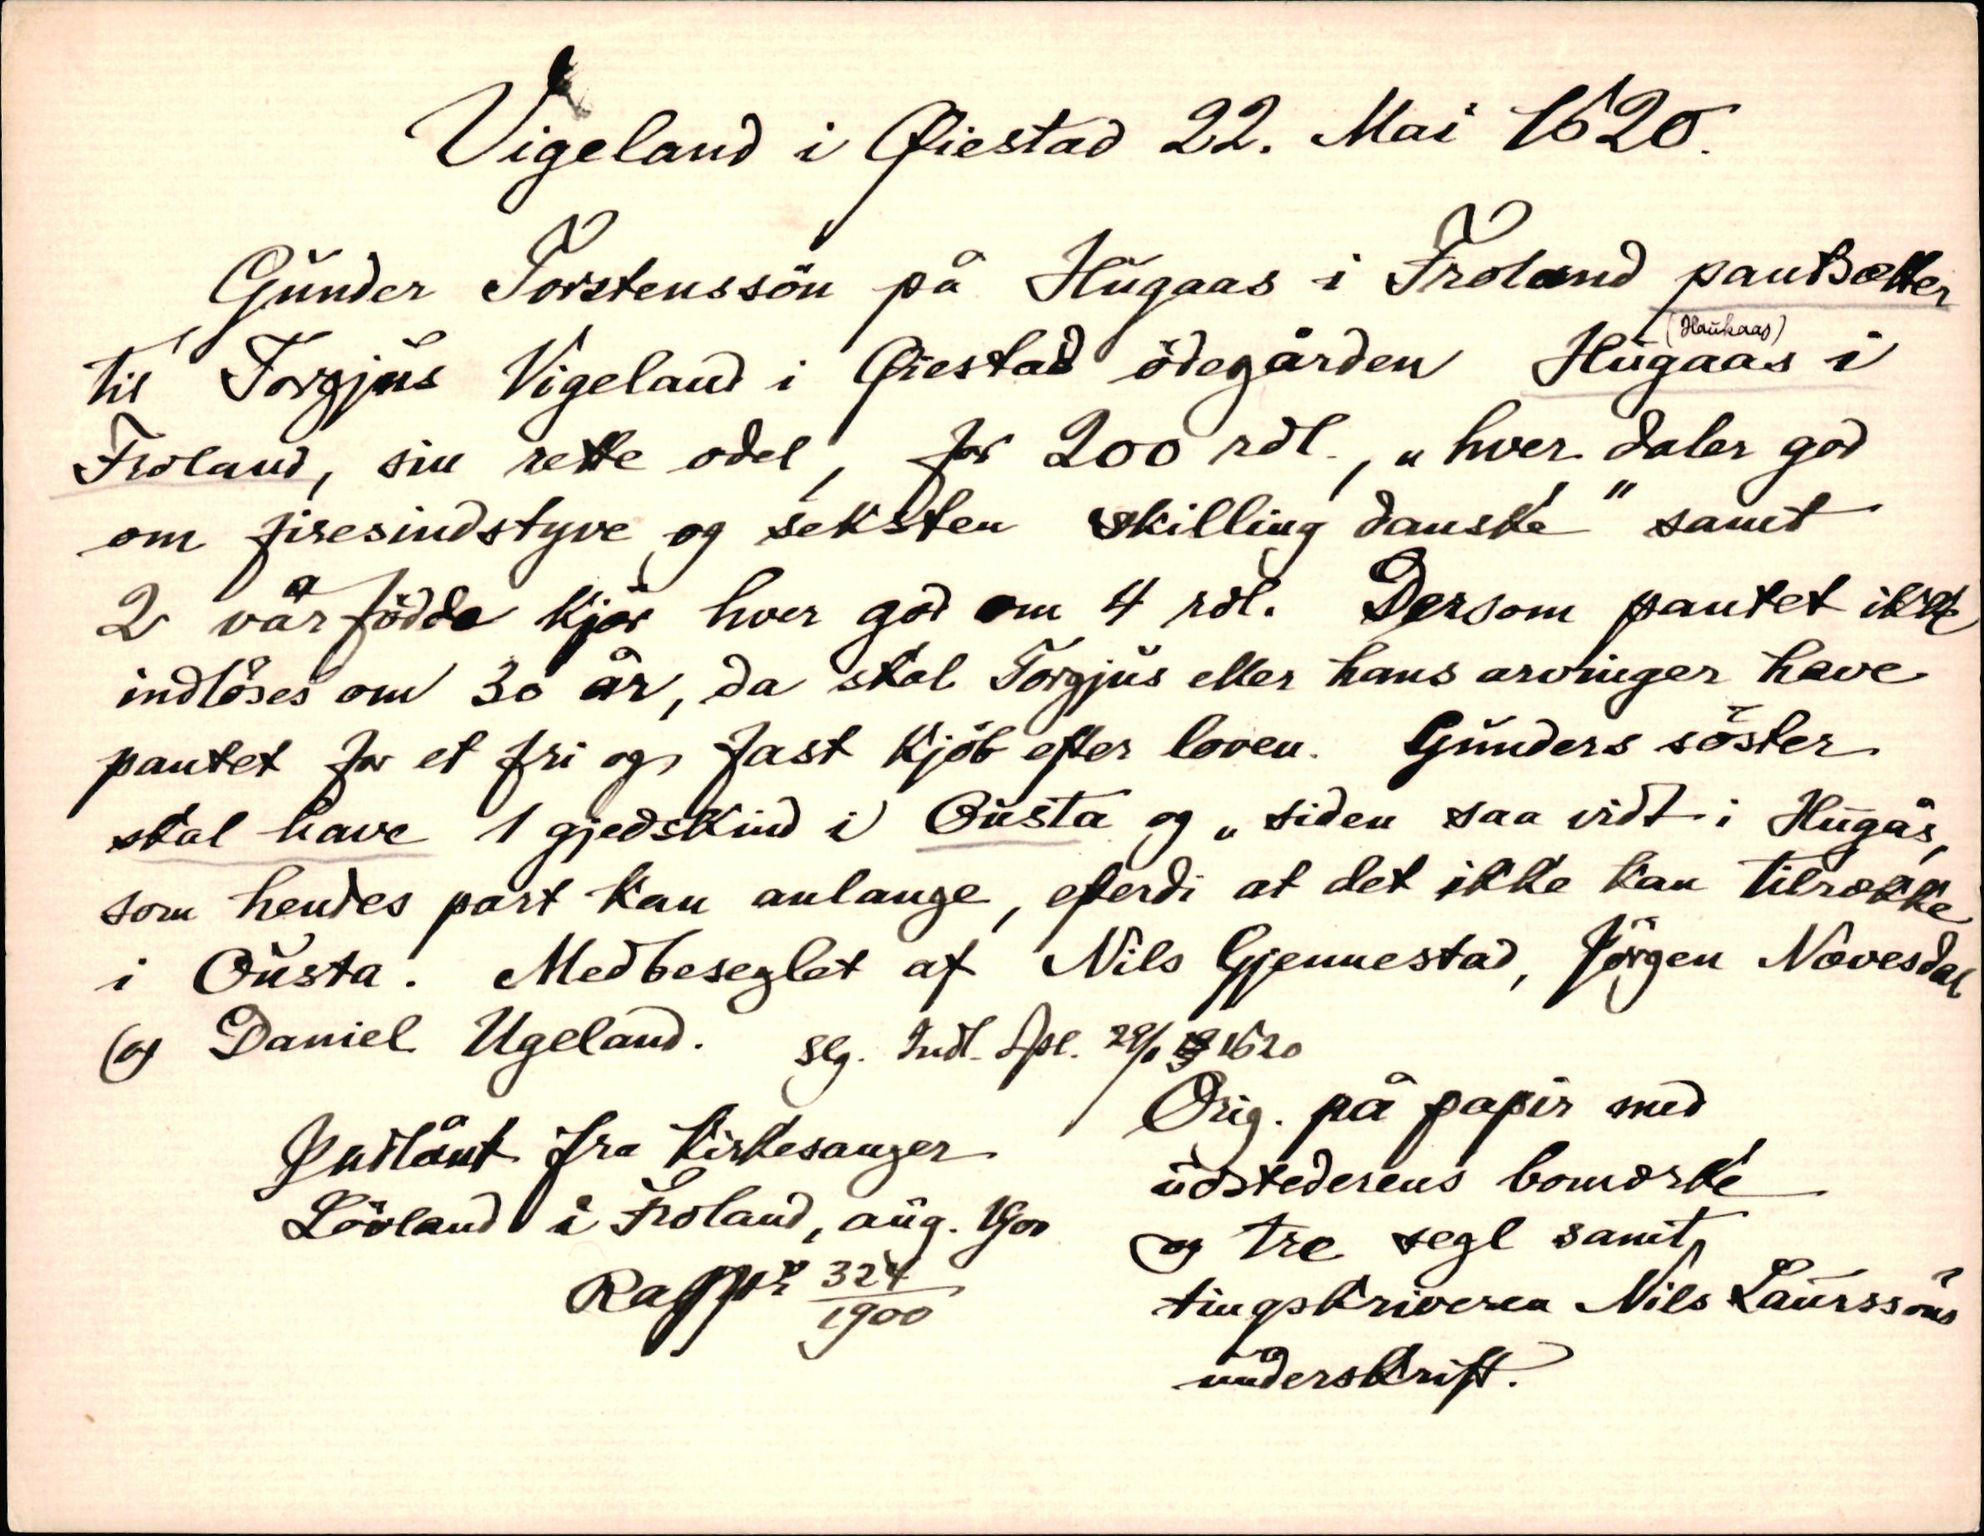 Vigeland i Øiestad 22. Mai 1620.
Gunder Torstenssön på Hugaas i Froland pantsætter
(Haukaas)
til Torgjus Vigeland i Øiestad ödegården Hugaas i
Froland, sin rette odel, for 200 rdl., „hver daler god
om firesindstyve og seksten skilling danske" samt
2 vårfödde kjör hver god om 4 rdl. Dersom pantet ikke
indlöses om 30 år, da skal Torgjus eller hans arvinger have
pantet for et fri og fast kjöb efter loven. Gunders söster
skal have 1 gjedskind i Ousta og „siden saa vidt i Hugås,
som hendes part kan anlange, efterdi at det ikke kan tilrække
i Ousta. Medbeseglet af Nils Gjennestad, Jörgen Nævesdal
og Daniel Ugeland. slg. Indl. Spl. 1620
Indlånt fra kirkesanger
Lövland i Froland, aug. 1900
324
1900
Orig. på papir med
udstederens bomærke
og tre segl samt
tingskriveren Nils Laurssöns
underskrift.